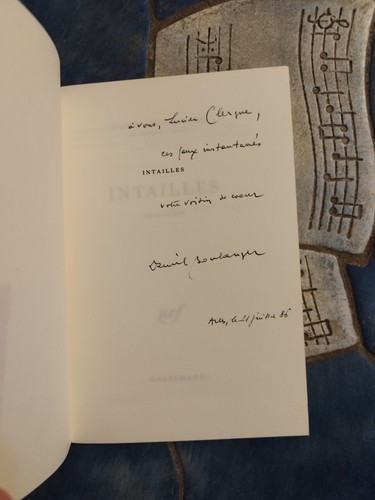 à vous, Lucien Clergue,
ces faux instantanés
INTAILLES
INTAILLES
votre voisin de coeur
Daniel Boulanger
nrf
Arles, le juillet 86
GALLIMARD